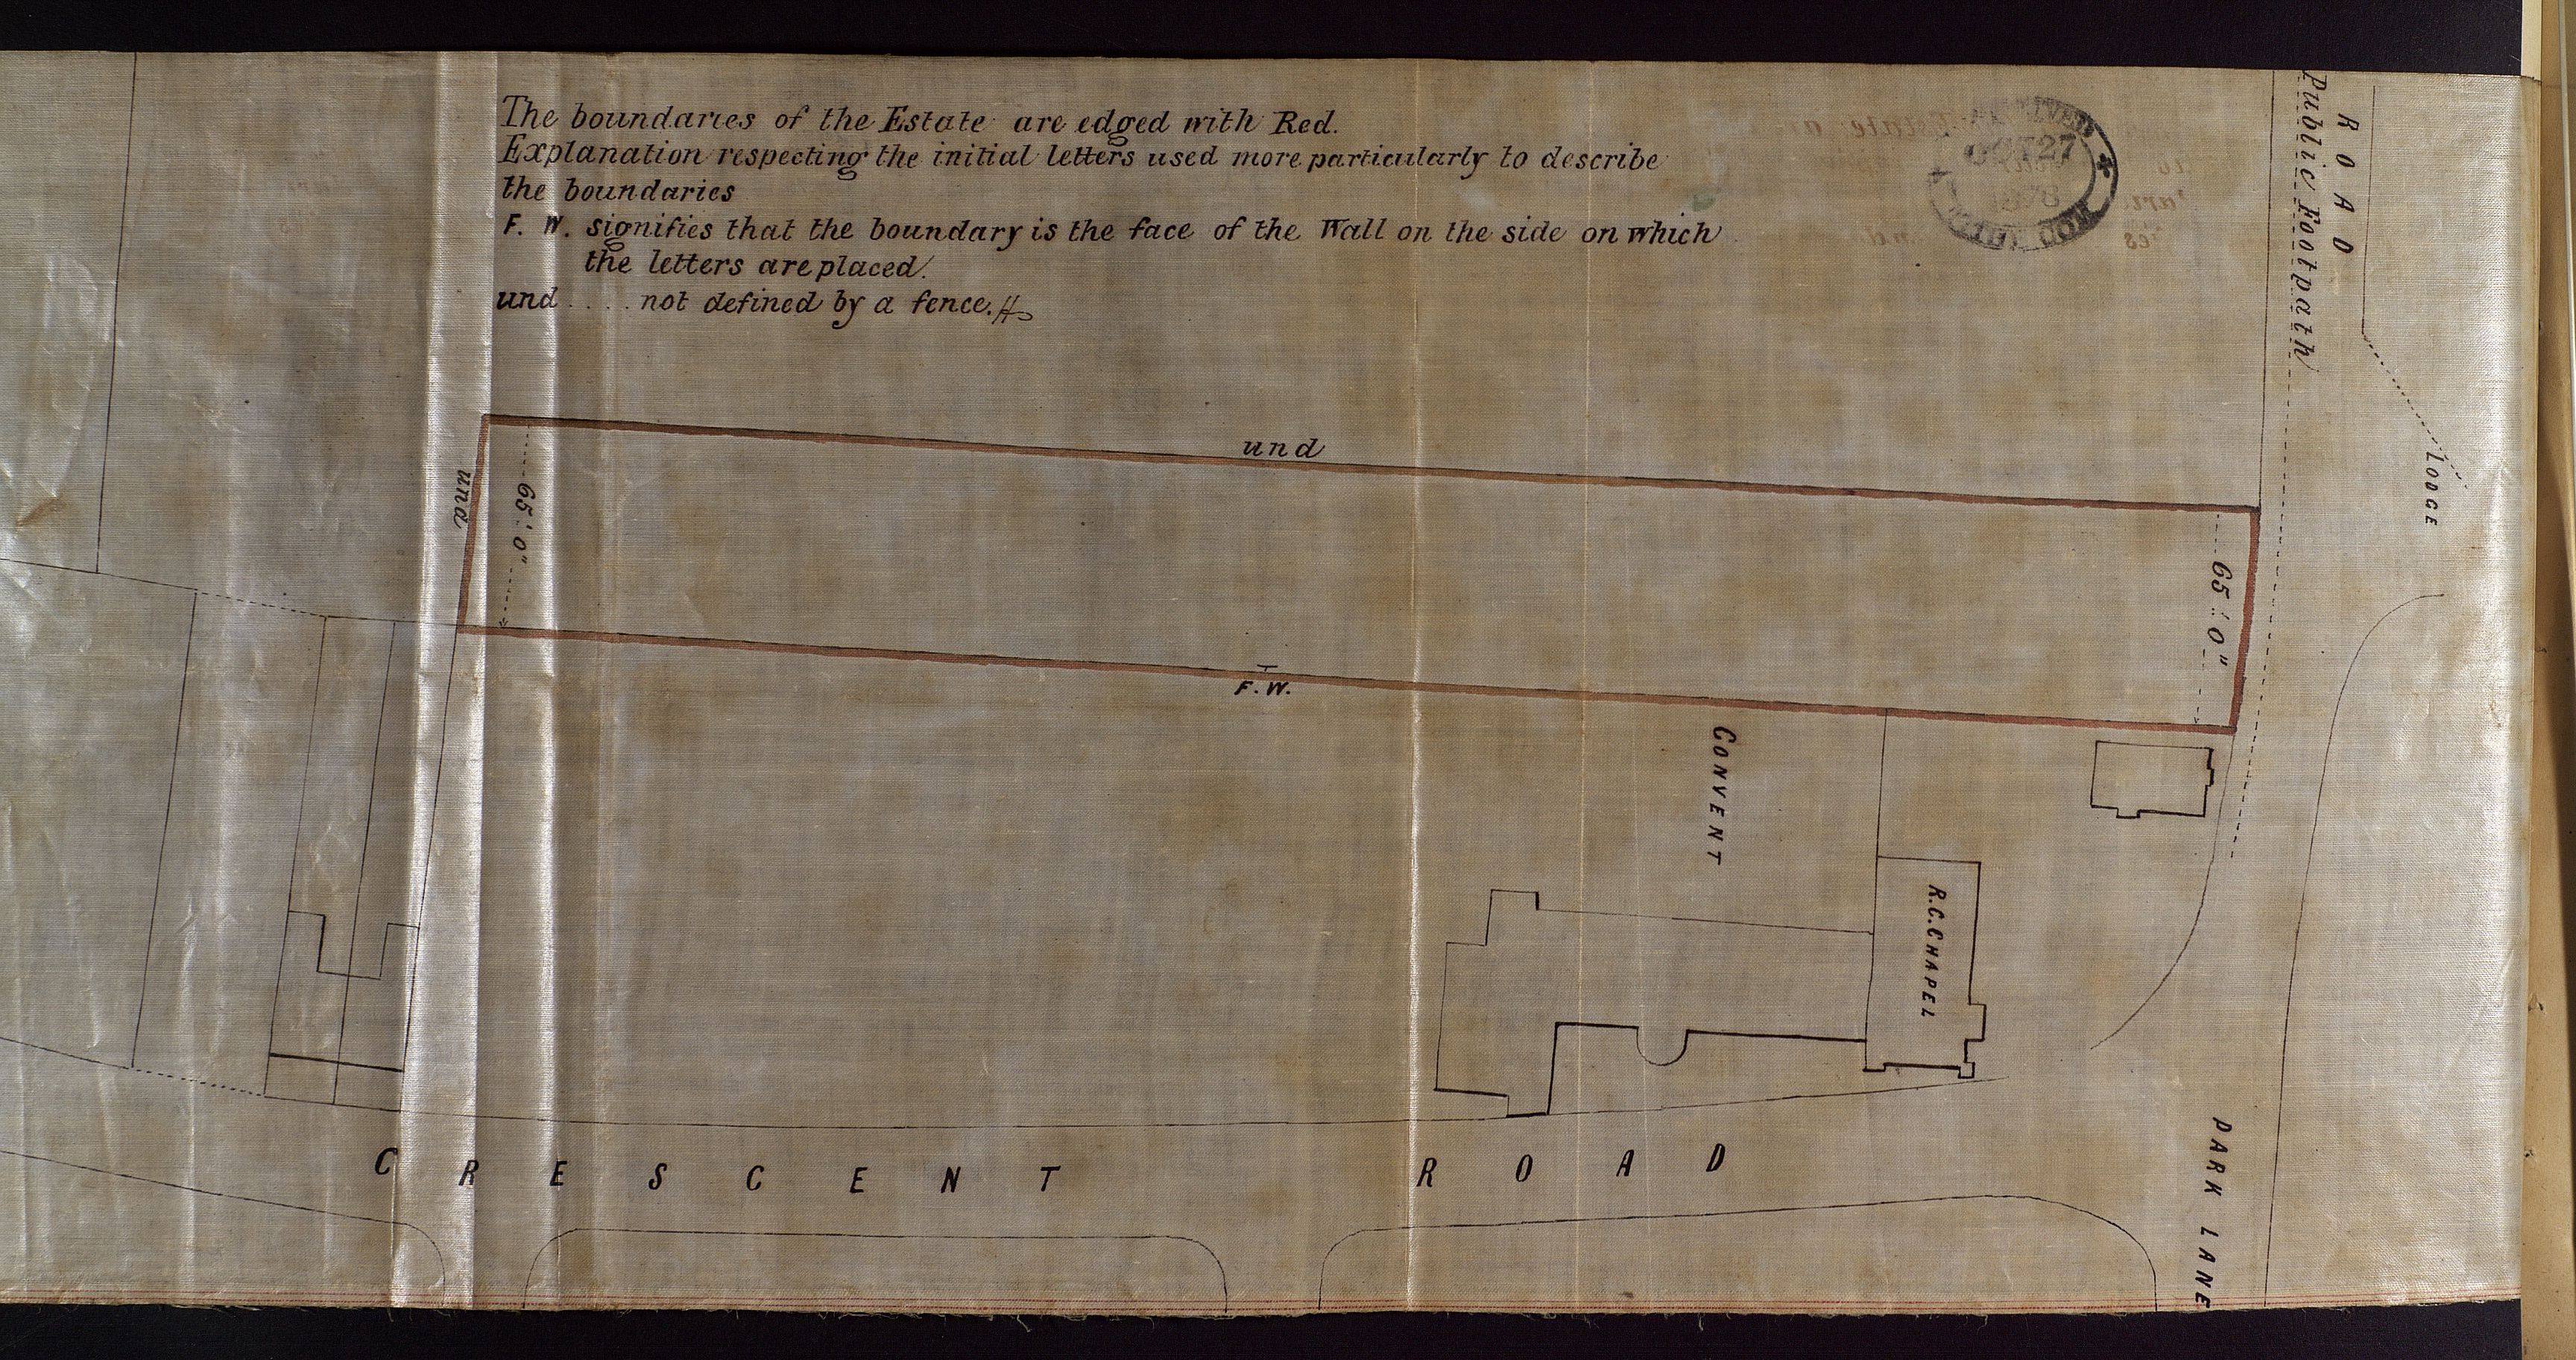 The boundaries of the Estate are edged with Red.
Explanation respecting the initial letters used more particularly to describe
the boundaries
F. W. signifies that the boundary is the face of the Wall on the side on which
the letters are placed.
und .... not defined by a fence.
Public Footpath
ROAD
LODGE
und
und
65' 0"
65' 0"
F. W.
CONVENT
R.C. CHAPEL
CRESCENT ROAD
PARK LANE